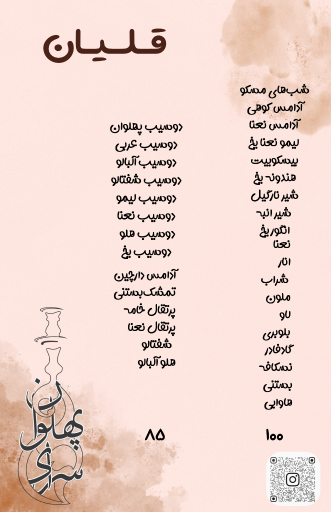 قلیان
شب‌های مسکو
آدامس کوهی
آدامس نعنا
لیمو نعنا یخ
بیسکوییت
هندونه یخ
شیر نارگیل
شیر انبه
انگور یخ
نعنا
انار
شراب
ملون
لاو
بلوبری
گادفادر
نسکافه
بستنی
هاوایی
۱۰۰
دوسیب پهلوان
دوسیب عربی
دوسیب آلبالو
دوسیب شفتالو
دوسیب لیمو
دوسیب نعنا
دوسیب هلو
دوسیب یخ
آدامس دارچین
تمشک بستنی
پرتقال خامه
پرتقال نعنا
شفتالو
هلو آلبالو
۸۵
سرای
پهلوان